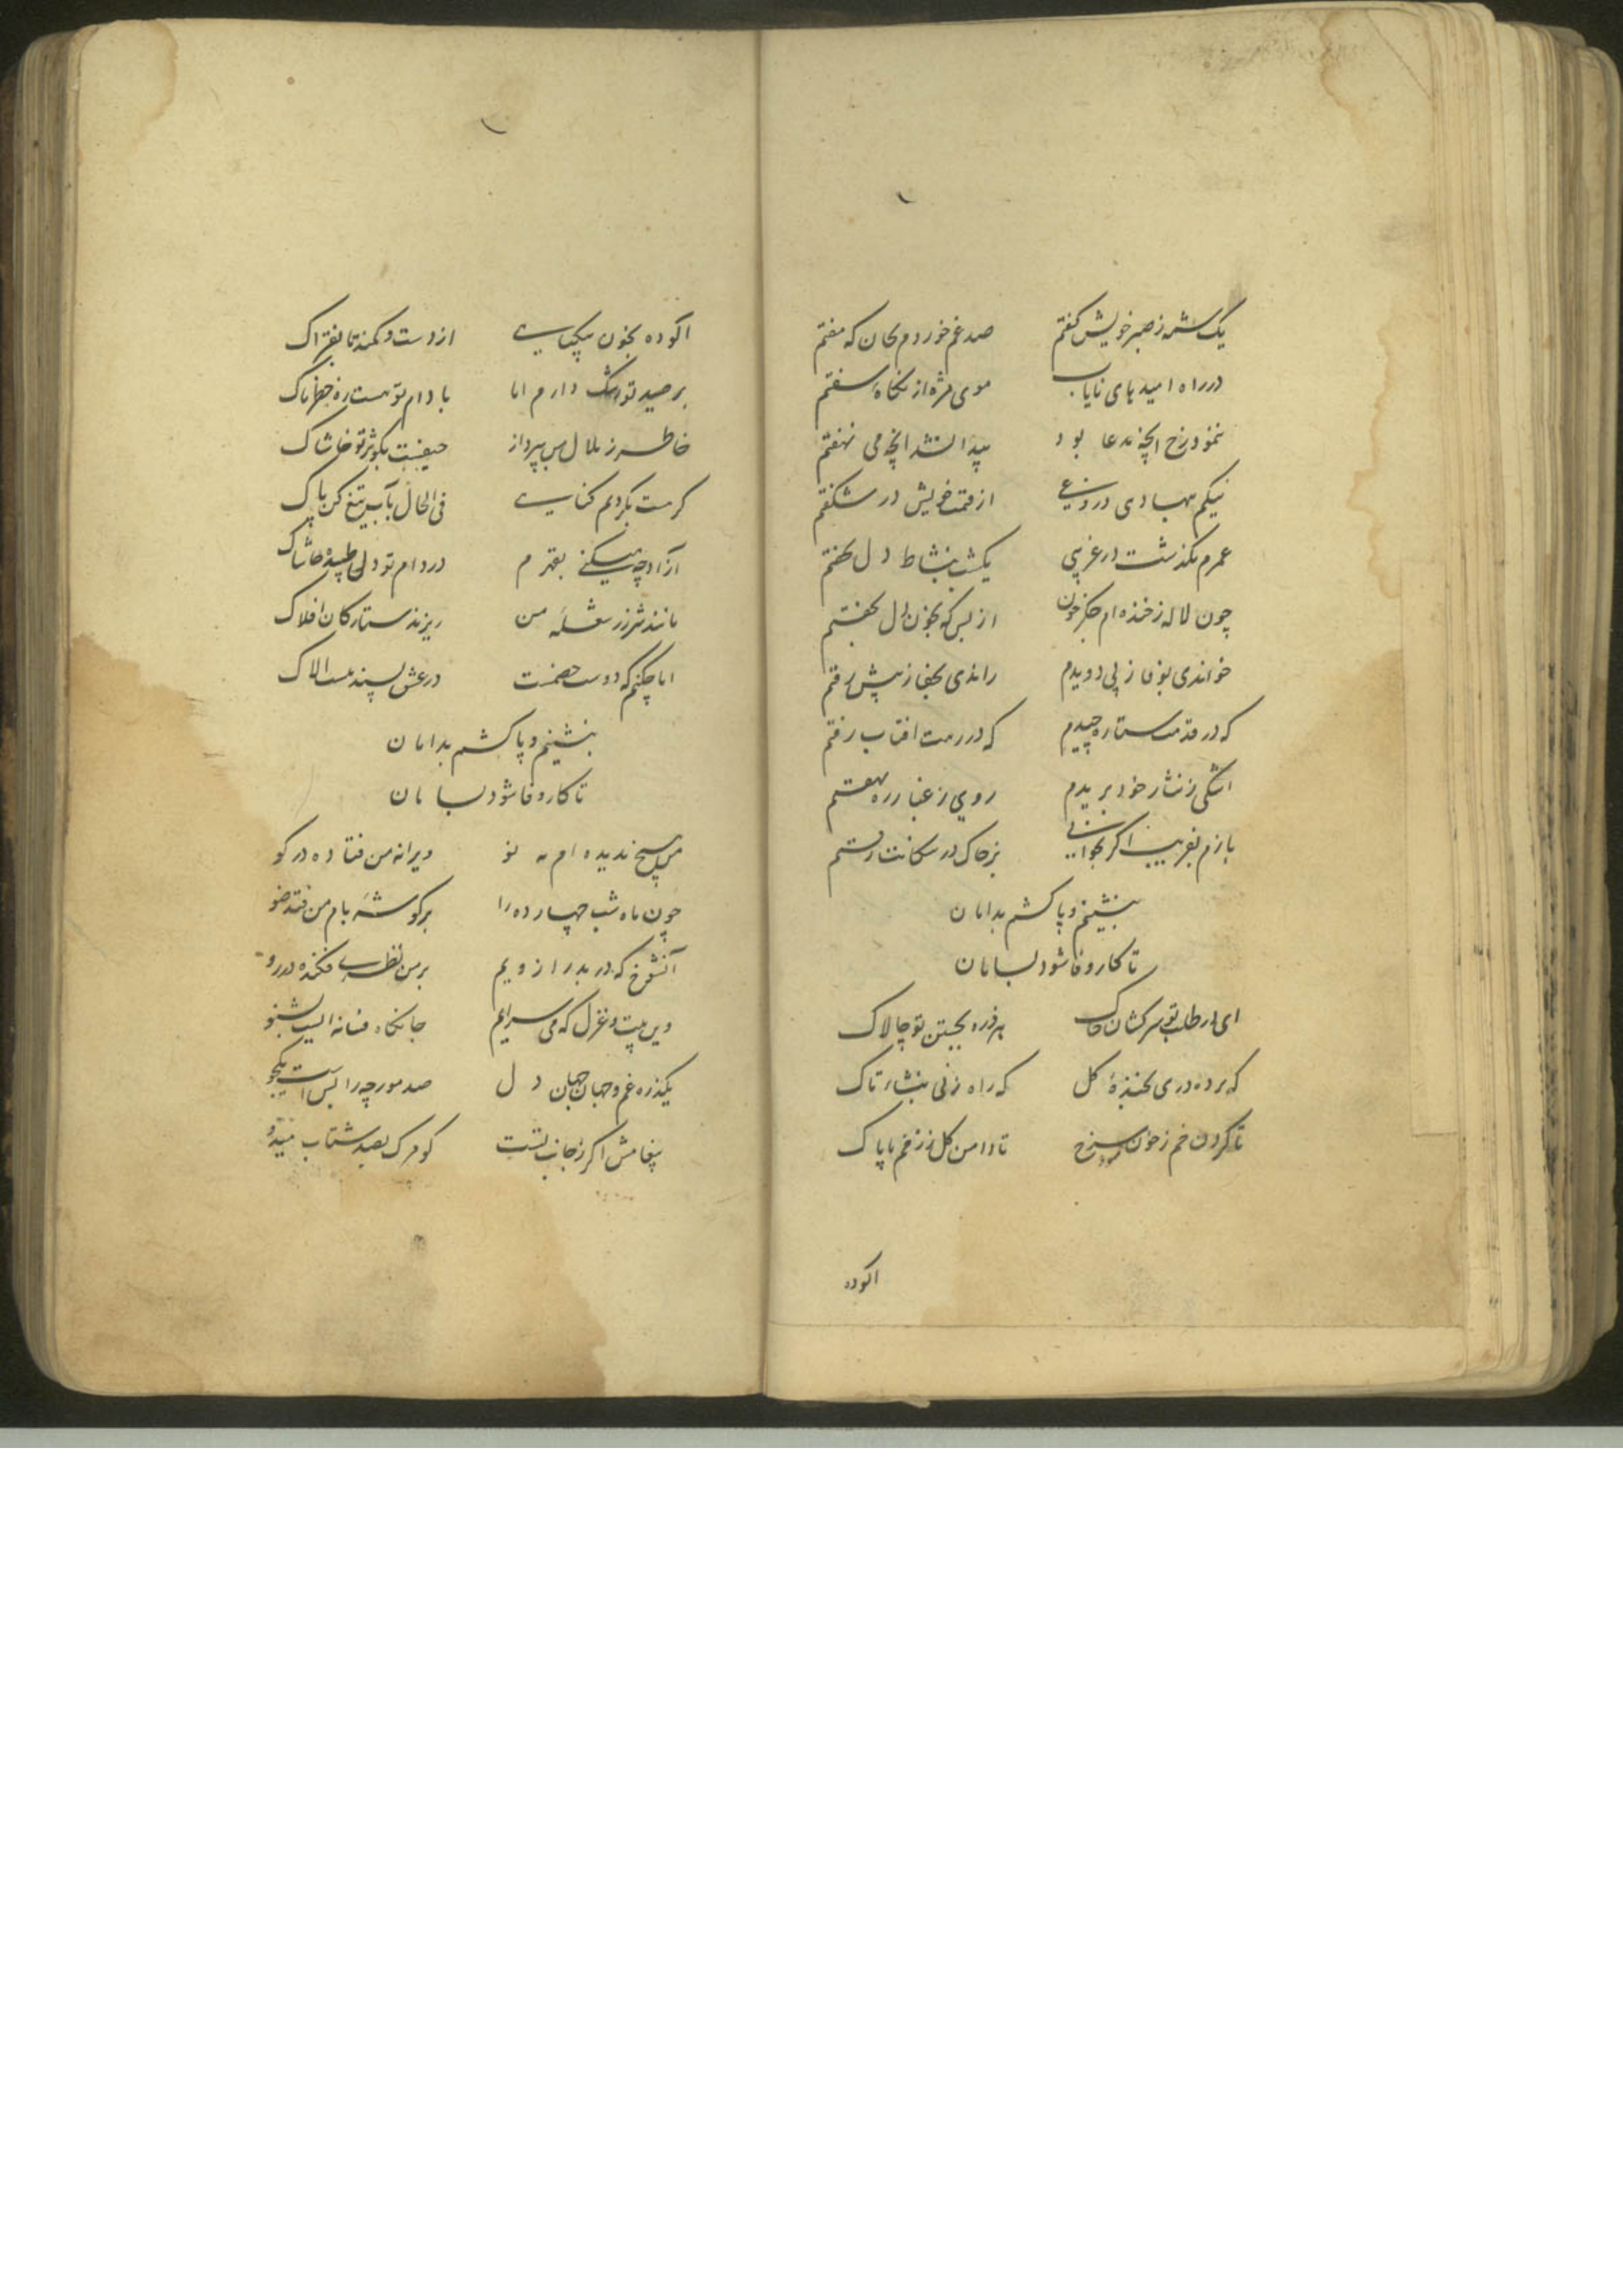 یک شمه ز صبر خویش گفتم صد غم خوردم بجان که مفتم
در راه امیدهای نایاب موی مژه از نگاه سفتم
ننمود رخ آنچه مدعا بود پیدا نشد آنچه می نهفتم
نیکم بهادی از قسمت خویش در شگفتم
عمرم بگذشت در غریبی یکشب بنشاط دل نخفتم
چون لاله ز خنده ام جگر خون از بس که بخون دل
خواندی بوفا ز پی دویدم راندی بجفا ز پیش رفتم
که در قدمت ستاره چیدم که در رهت افتاب رفتم
اشکی ز نثار خود بریدم روی ز غبار ره
بازم بفریب اگر بخوانی بر خاک در
بنشینم و پا کشم بدامان
تا کار وفا شود بسامان
ای در طلب تو سرکشان خاک هر ذره بجستن تو چالاک
که پرده دری بخنده گل که راه زنی بنشاء تاک
تا گردن خم ز خون سرخ تا دامن گل ز زخم پا پاک
الوده
الوده بخون بیگناهی از دست و کمند تا بفتراک
بر صید تو رشک دارم اما با دام تو
خاطر ز ملال من بپرداز حیفست بکوثر تو خاشاک
کر هست بکردنم گناهی فی الحال بآب تیغ کن پاک
آزاد چه میکنی بقهرم در دام تو دل طپیده حاشاک
مانند شرر ز شعله من ریزند ستارگان افلاک
اما چکنم که دوست خصمست در عشق پسند
بنشینم و پا کشم بدامان
تا کار وفا شود بسامان
من هیچ ندیده ام به تو ویرانه من فتاده در کو
چون ماه شب چهارده را بر گوشه بام من فتد ضو
آنشوخ که در بدر ازویم بر من نظری فکنده در رو
وین بیت و غزل که می سرایم جانکاه فسانه ایست بشنو
یکذره غم و جهان جهان دل صد مورچه را بس است یکجو
پیغامش اگر ز جانب تست کو مرک بصد شتاب میدو